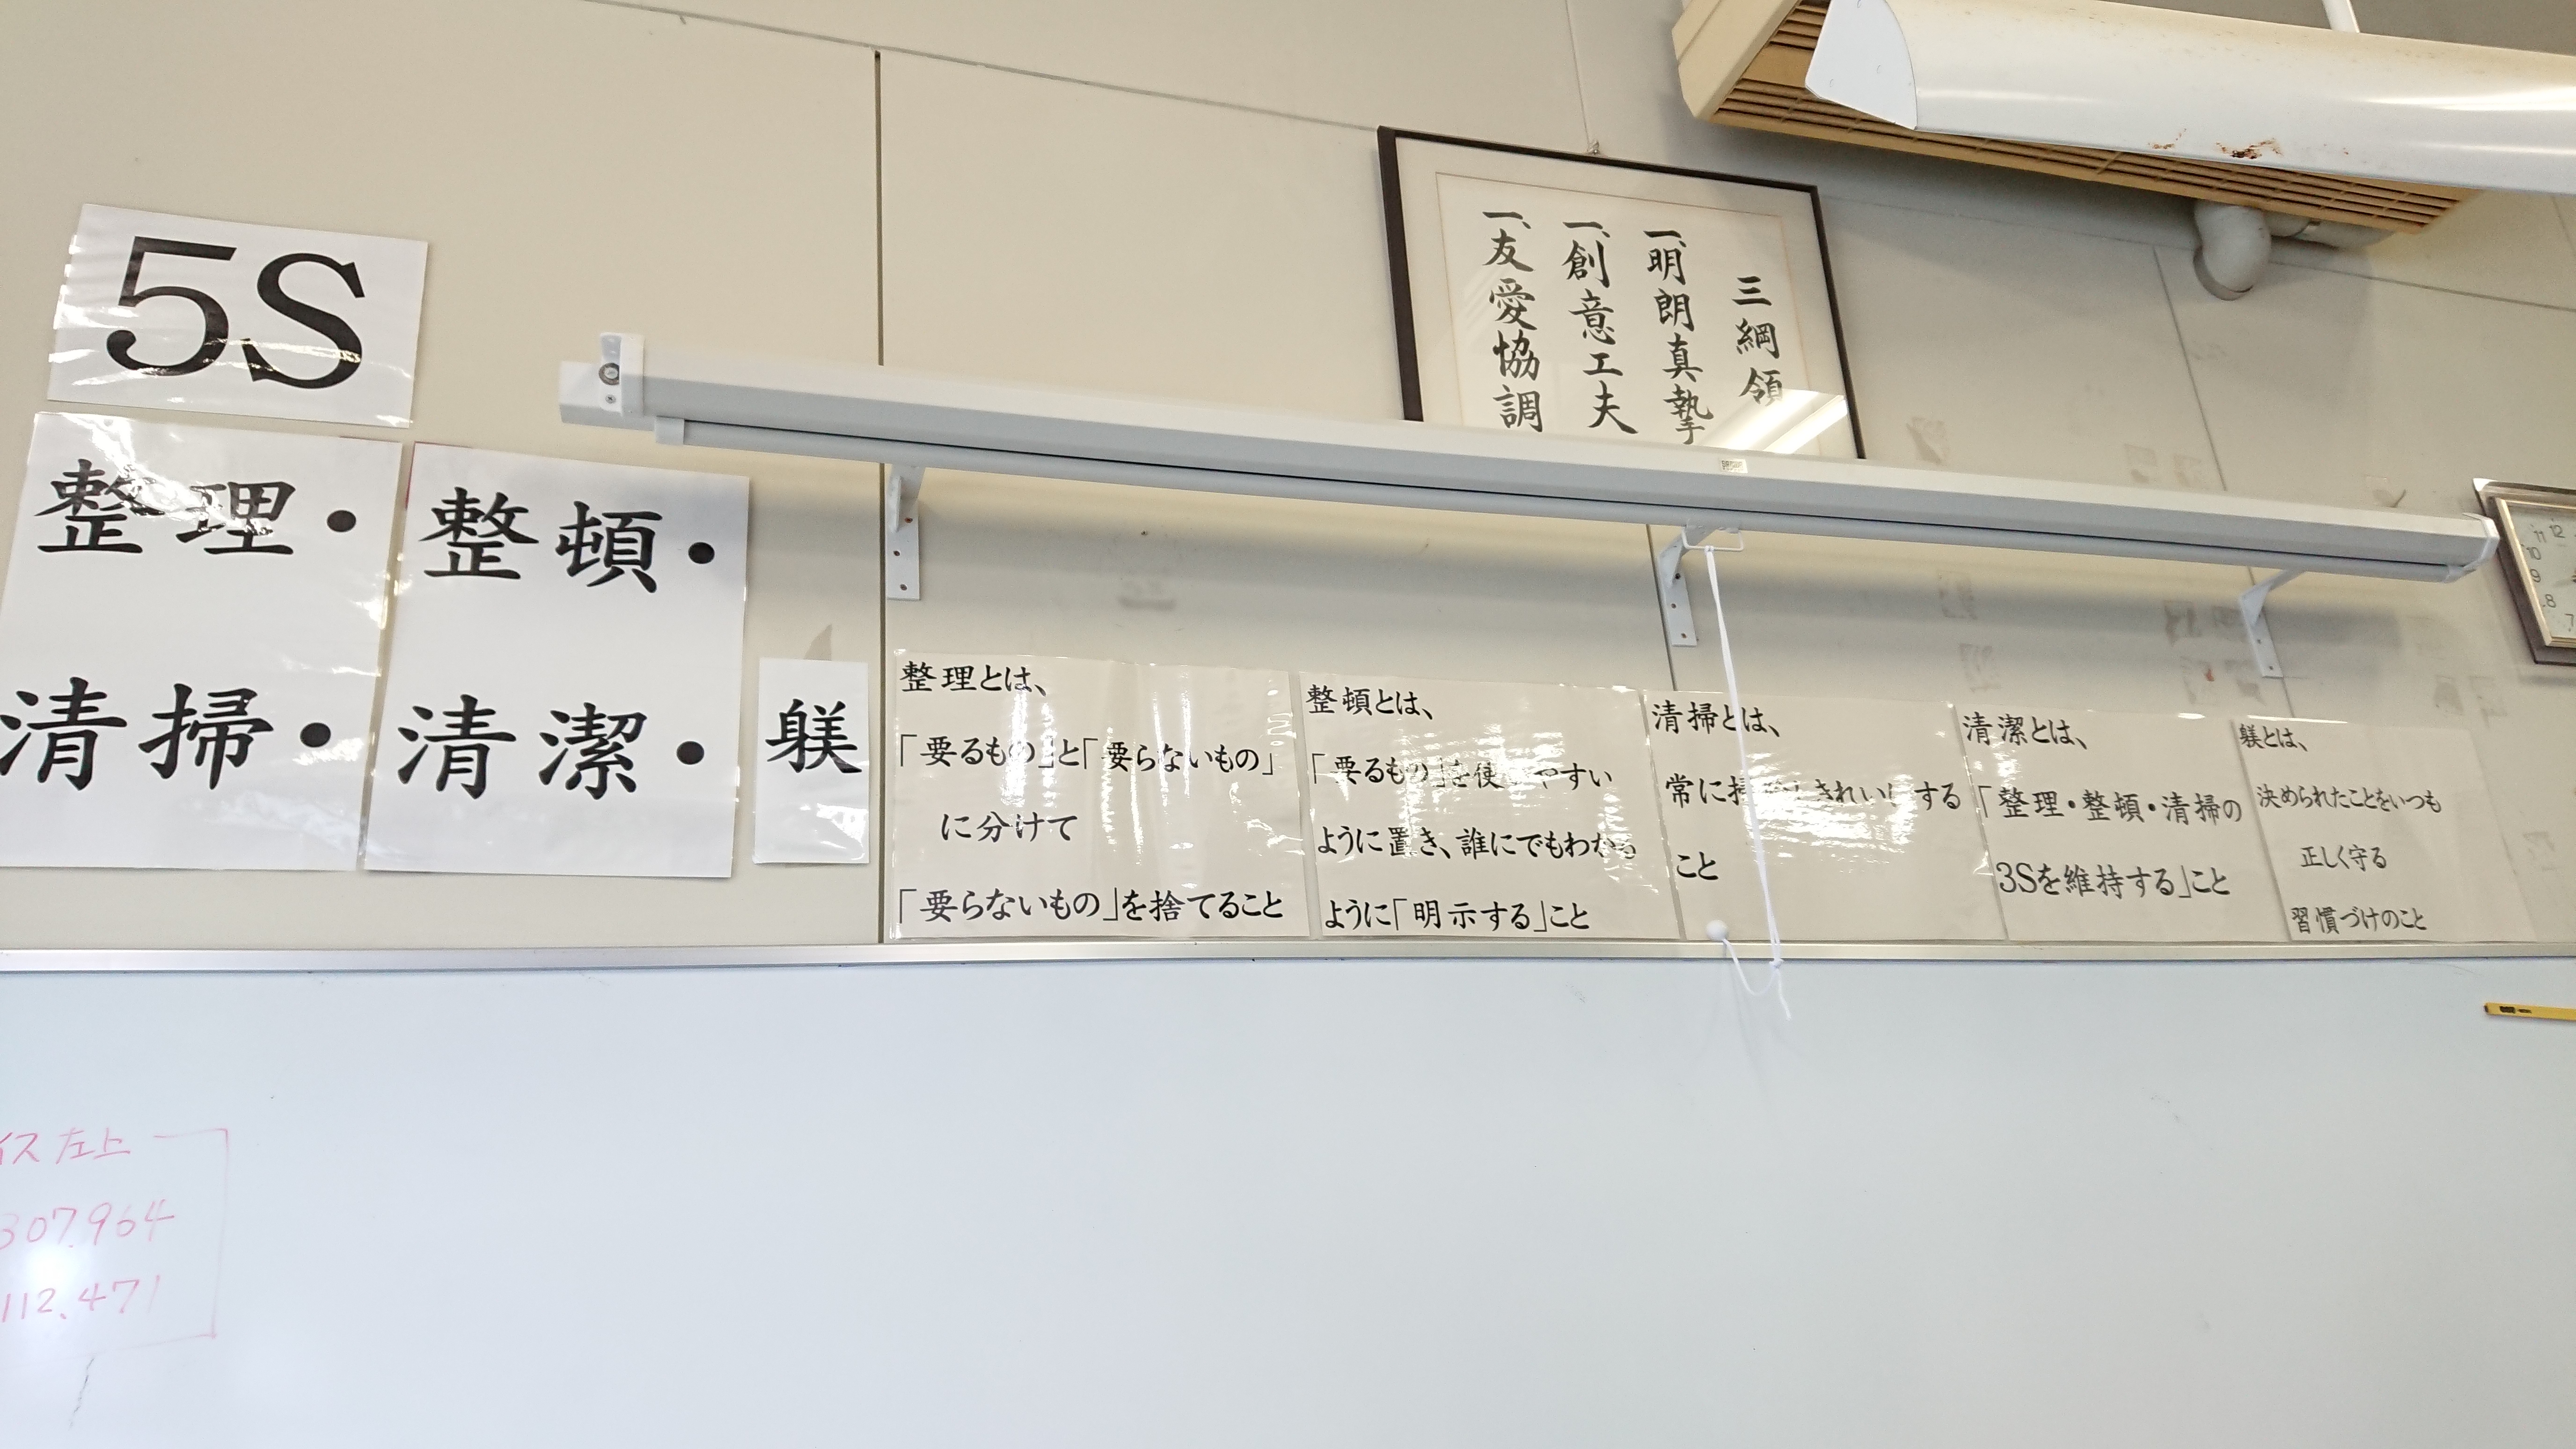 5S
整理・整頓・
清掃・清潔・躾
三綱領
一、明朗真摯
一、創意工夫
一、友愛協調
整理とは、
「要るもの」と「要らないもの」
に分けて
「要らないもの」を捨てること
整頓とは、
「要るもの」を使いやすい
ように置き、誰にでもわかる
ように「明示する」こと
清掃とは、
常に掃除しきれいにする
こと
清潔とは、
「整理・整頓・清掃の
3Sを維持する」こと
躾とは、
決められたことをいつも
正しく守る
習慣づけのこと
11 12
10
9
8
7
イス左上
307.964
112.471